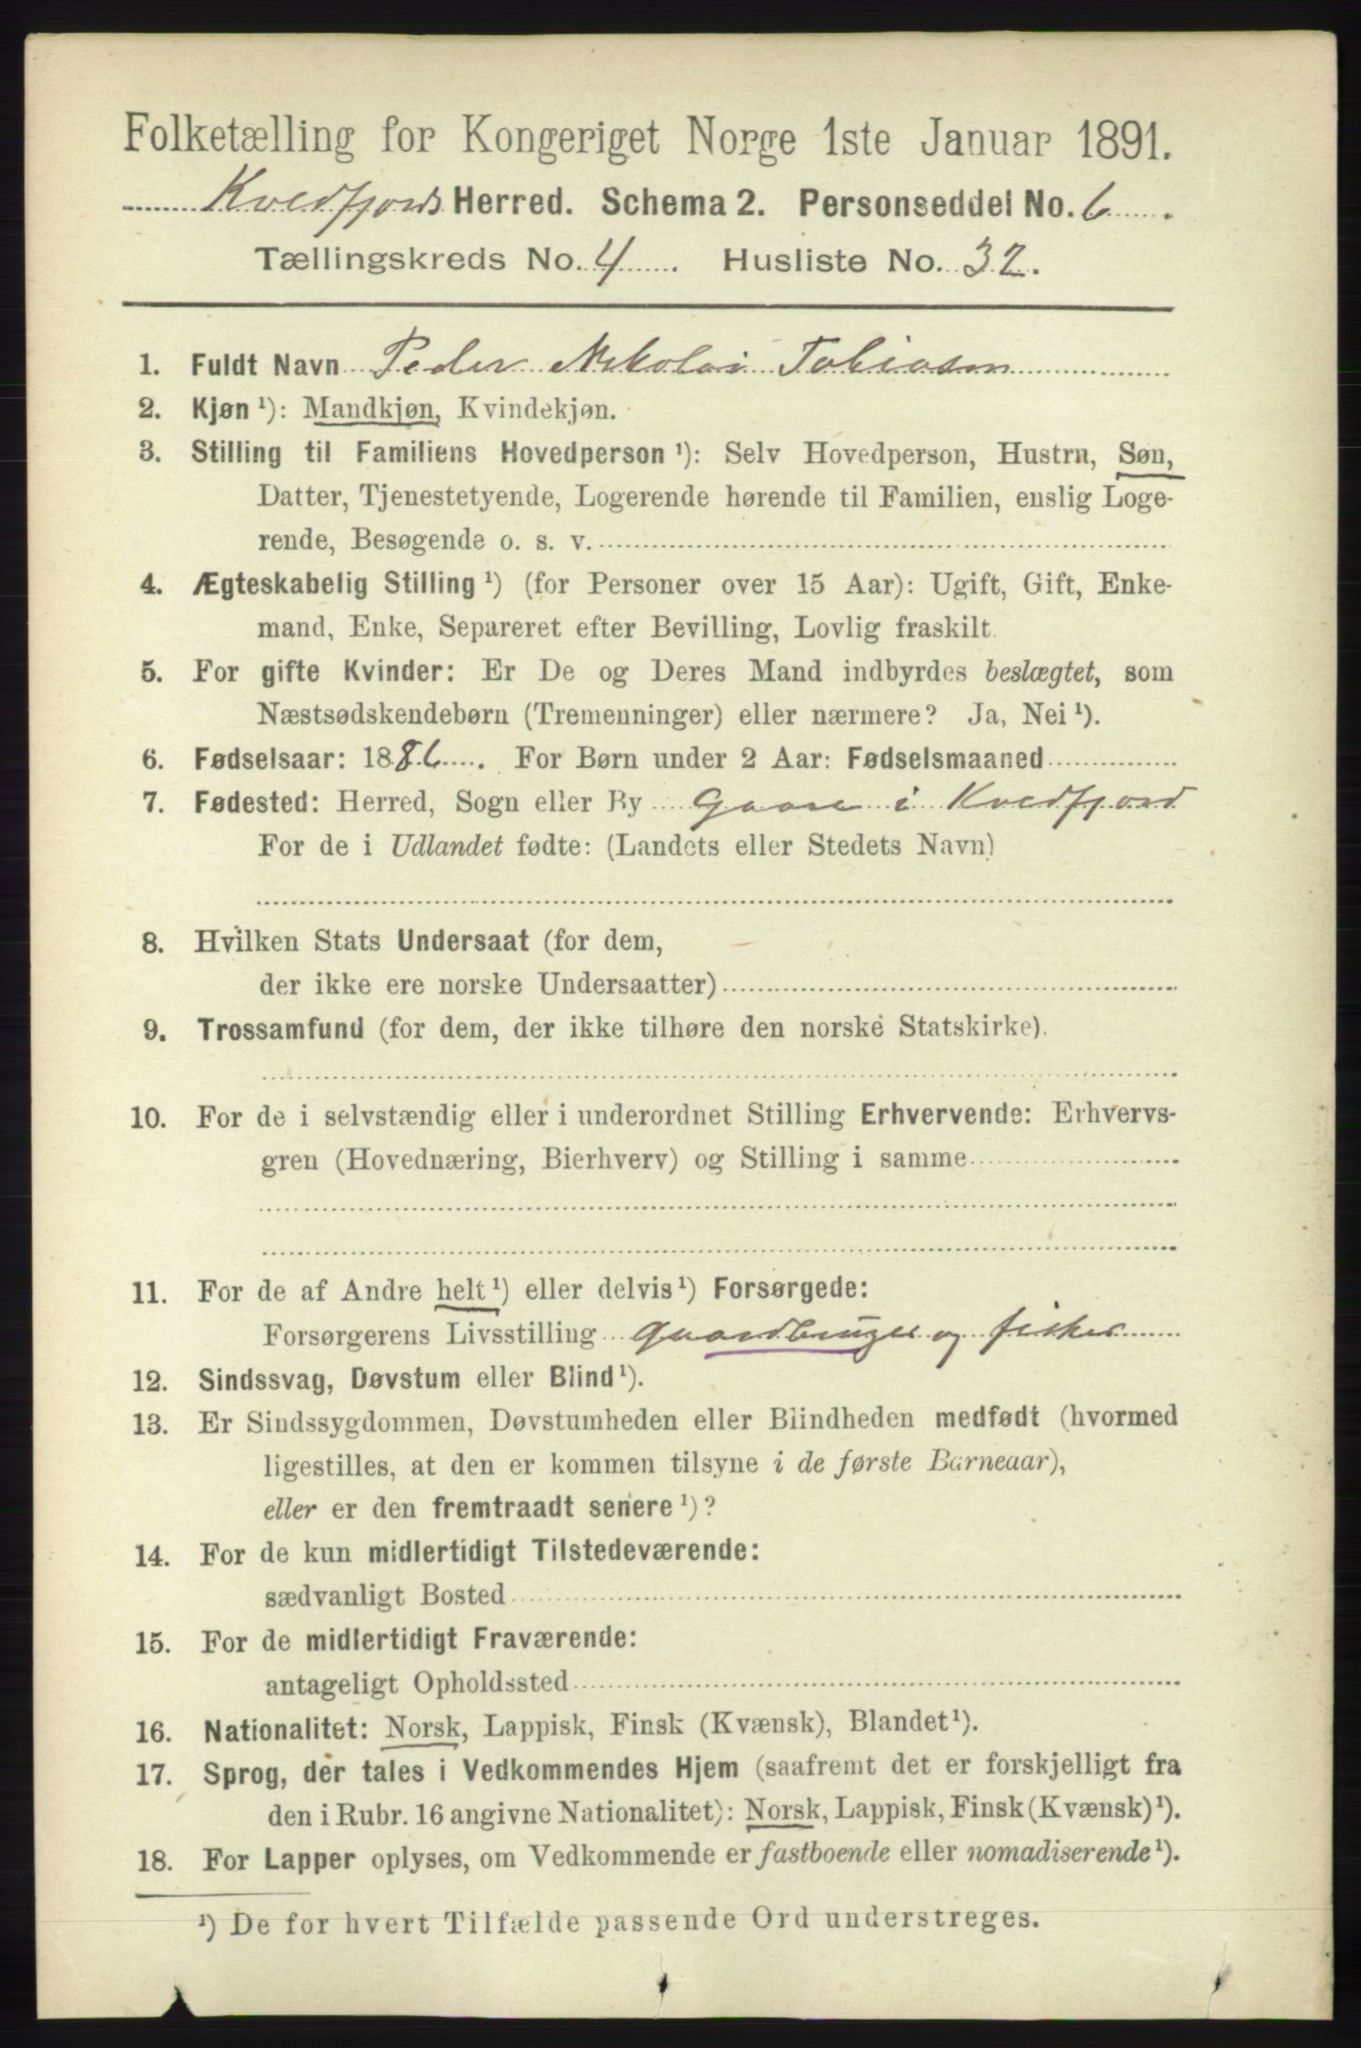 Folketælling for Kongeriget Norge 1ste Januar 1891.
Kvedfjords Herred. Schema 2. Personseddel No. 6.
Tællingskreds No. 4. Husliste No. 32.
1. Fuldt Navn Peder Nikolai Tobiasen
2. Kjøn ¹): Mandkjøn, Kvindekjøn.
3. Stilling til Familiens Hovedperson ¹): Selv Hovedperson, Hustru, Søn,
Datter, Tjenestetyende, Logerende hørende til Familien, enslig Loge-
rende, Besøgende o. s. v.
4. Ægteskabelig Stilling ¹) (for Personer over 15 Aar): Ugift, Gift, Enke-
mand, Enke, Separeret efter Bevilling, Lovlig fraskilt.
5. For gifte Kvinder: Er De og Deres Mand indbyrdes beslægtet, som
Næstsødskendebørn (Tremenninger) eller nærmere? Ja, Nei ¹).
6. Fødselsaar: 1886. For Børn under 2 Aar: Fødselsmaaned
7. Fødested: Herred, Sogn eller By Gaare i Kvedfjord
For de i Udlandet fødte: (Landets eller Stedets Navn)
8. Hvilken Stats Undersaat (for dem,
der ikke ere norske Undersaatter)
9. Trossamfund (for dem, der ikke tilhøre den norske Statskirke).
10. For de i selvstændig eller i underordnet Stilling Erhvervende: Erhvervs-
gren (Hovednæring, Bierhverv) og Stilling i samme
11. For de af Andre helt ¹) eller delvis ¹) Forsørgede:
Forsørgerens Livsstilling gaardbruger og fisker
12. Sindssvag, Døvstum eller Blind ¹).
13. Er Sindssygdommen, Døvstumheden eller Blindheden medfødt (hvormed
ligestilles, at den er kommen tilsyne i de første Barneaar),
eller er den fremtraadt senere ¹)?
14. For de kun midlertidigt Tilstedeværende:
sædvanligt Bosted
15. For de midlertidigt Fraværende:
antageligt Opholdssted
16. Nationalitet: Norsk, Lappisk, Finsk (Kvænsk), Blandet ¹).
17. Sprog, der tales i Vedkommendes Hjem (saafremt det er forskjelligt fra
den i Rubr. 16 angivne Nationalitet): Norsk, Lappisk, Finsk (Kvænsk) ¹).
18. For Lapper oplyses, om Vedkommende er fastboende eller nomadiserende ¹).
¹) De for hvert Tilfælde passende Ord understreges.